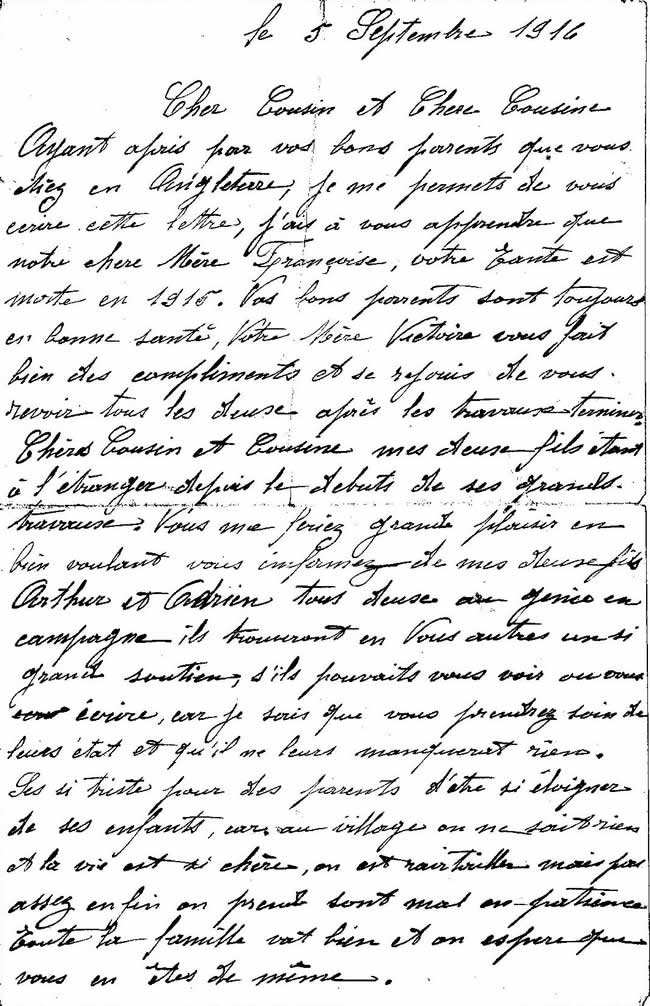 le 5 Septembre 1916
Cher Cousin et Chere Cousine
Ayant apris par vos bons parents que vous
êtiez en Angleterre, je me permets de vous
ecrire cette lettre, j'ais à vous apprendre que
notre chere Mère Françoise, votre Tante est
morte en 1915. Vos bons parents sont toujours
en bonne santé, Votre Mère Victoire vous fait
bien des compliments et se rejouis de vous
revoir tous les deuse après les travause terminer
Chèrs Cousin et Cousine mes deuse fils étant
à l'étranger depuis le debuts de ses grands
travause. Vous me feriez grande plaisir en
bien voulant vous informez de mes deuse fils
Arthur et Adrien tous deuse au genie en
campagne ils trouvront en Vous autres un si
grand soutien, s'ils pouvaits vous voir ou vous
écrire, car je sais que vous prendrez soin de
leurs état et qu'il ne leurs manquerat rien.
Ses si triste pour des parents d'être si éloigner
de ses enfants, car au village on ne sait rien
et la vie est si chère, on est mais pas
assez enfin on prend sont mal en patience
Toute la famille vat bien et on espere que
vous en êtes de même.